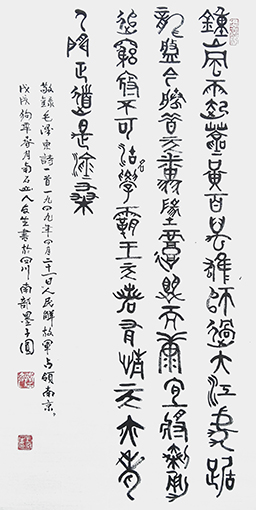 鐘山風雨起蒼黃百萬雄師過大江虎踞
龍盤今勝昔天翻地覆慨而慷宜將剩勇
追窮寇不可沽名學霸王天若有情天亦老
人間正道是滄桑
敬錄毛澤東詩一首一九四九年四月二十一日人民解放軍占領南京。
戊戌狗年香月南石山人書於四川南部墨子園